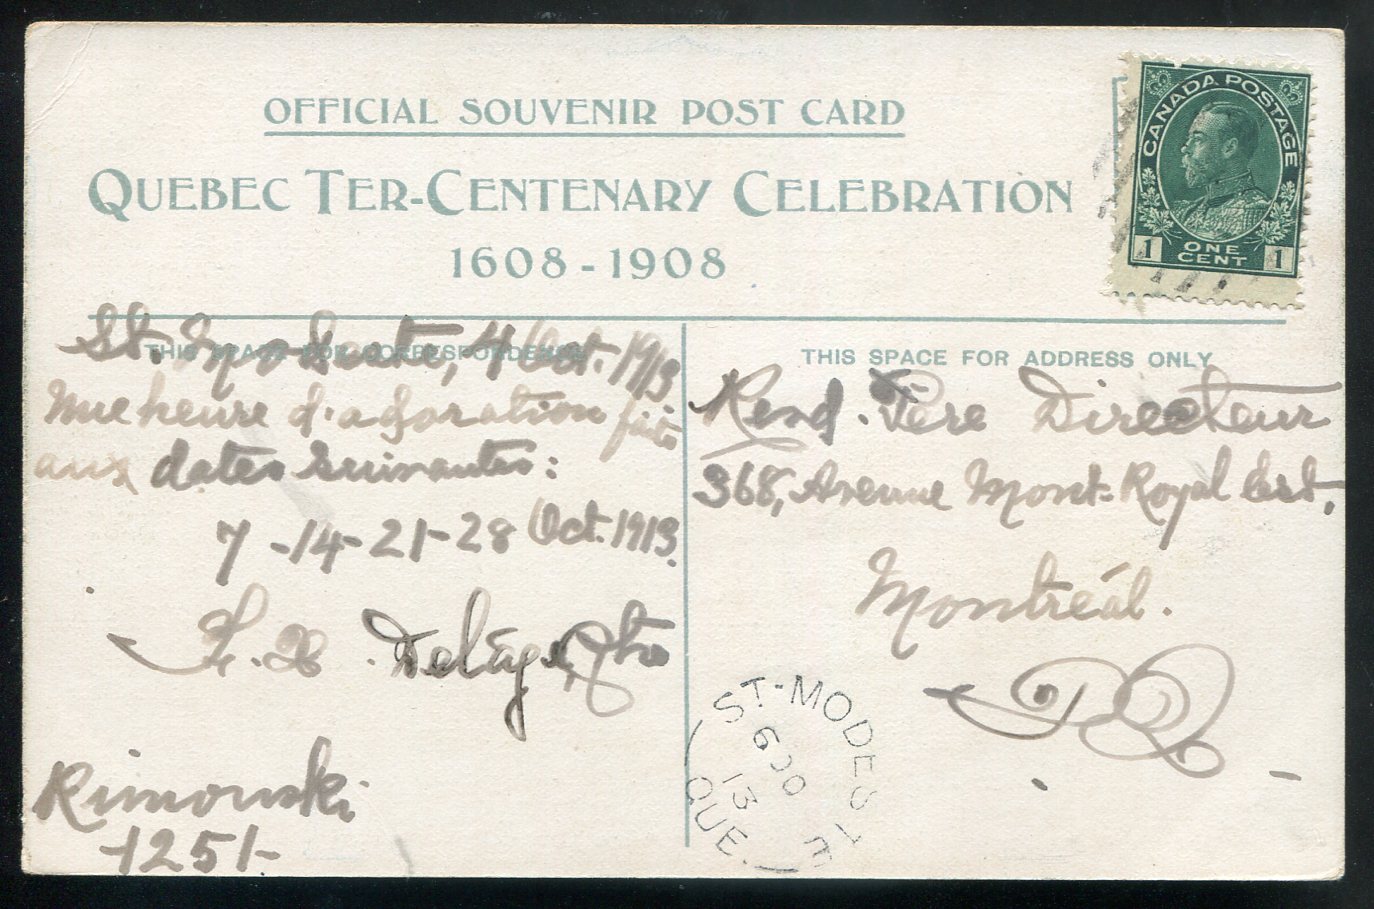 OFFICIAL SOUVENIR POST CARD
QUEBEC TER-CENTENARY CELEBRATION
1608 - 1908
CANADA POSTAGE
1 ONE CENT 1
THIS SPACE FOR CORRESPONDENCE
St. 4 Oct. 1913
Une heure d'adoration
aux dates suivantes:
7 - 14 - 21 - 28 Oct. 1913.
F. X. Delâge, Ptre
Rimouski
1251
THIS SPACE FOR ADDRESS ONLY
Revd. Père Directeur
368, Avenue Mont-Royal Est,
Montréal.
P Q
ST-MODESTE
6 OC
13
QUE.